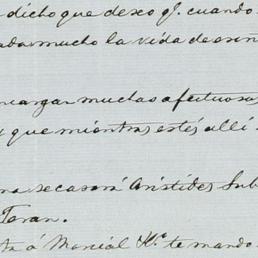 dicho que deseo q.l cuando
mucho la vida de
encargar muchas afectuosas
y que mientras estés allí.
na se casará Arístides Sub
Teran.
ta á Marcial H.e te mando